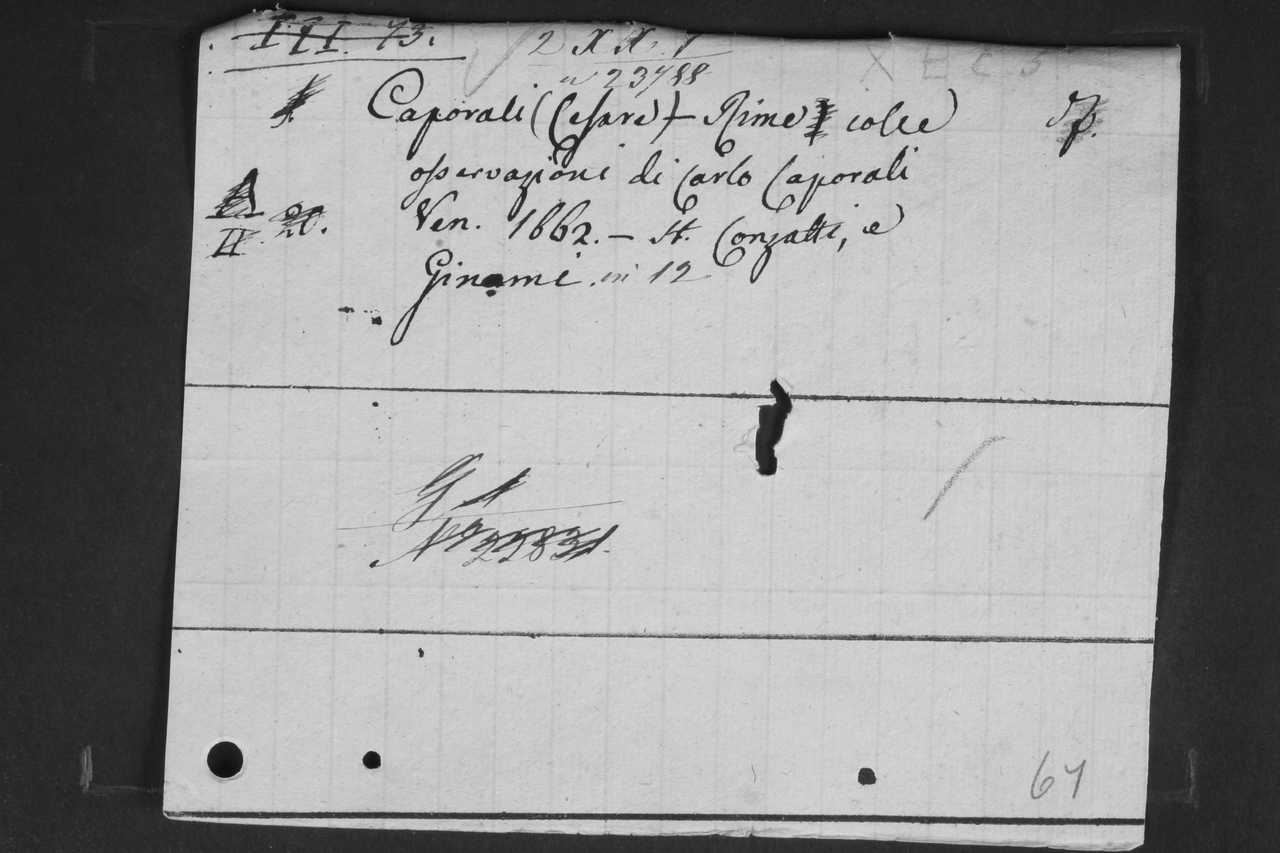 III. 73.
2 XX. 1
n 23788
X E C 5
Caporali (Cesare) – Rime colle
osservazioni di Carlo Caporali
II. 20.
Ven. 1662. – St. Conzatti, e
Ginami. in 12
G 1
Nº 22831.
67